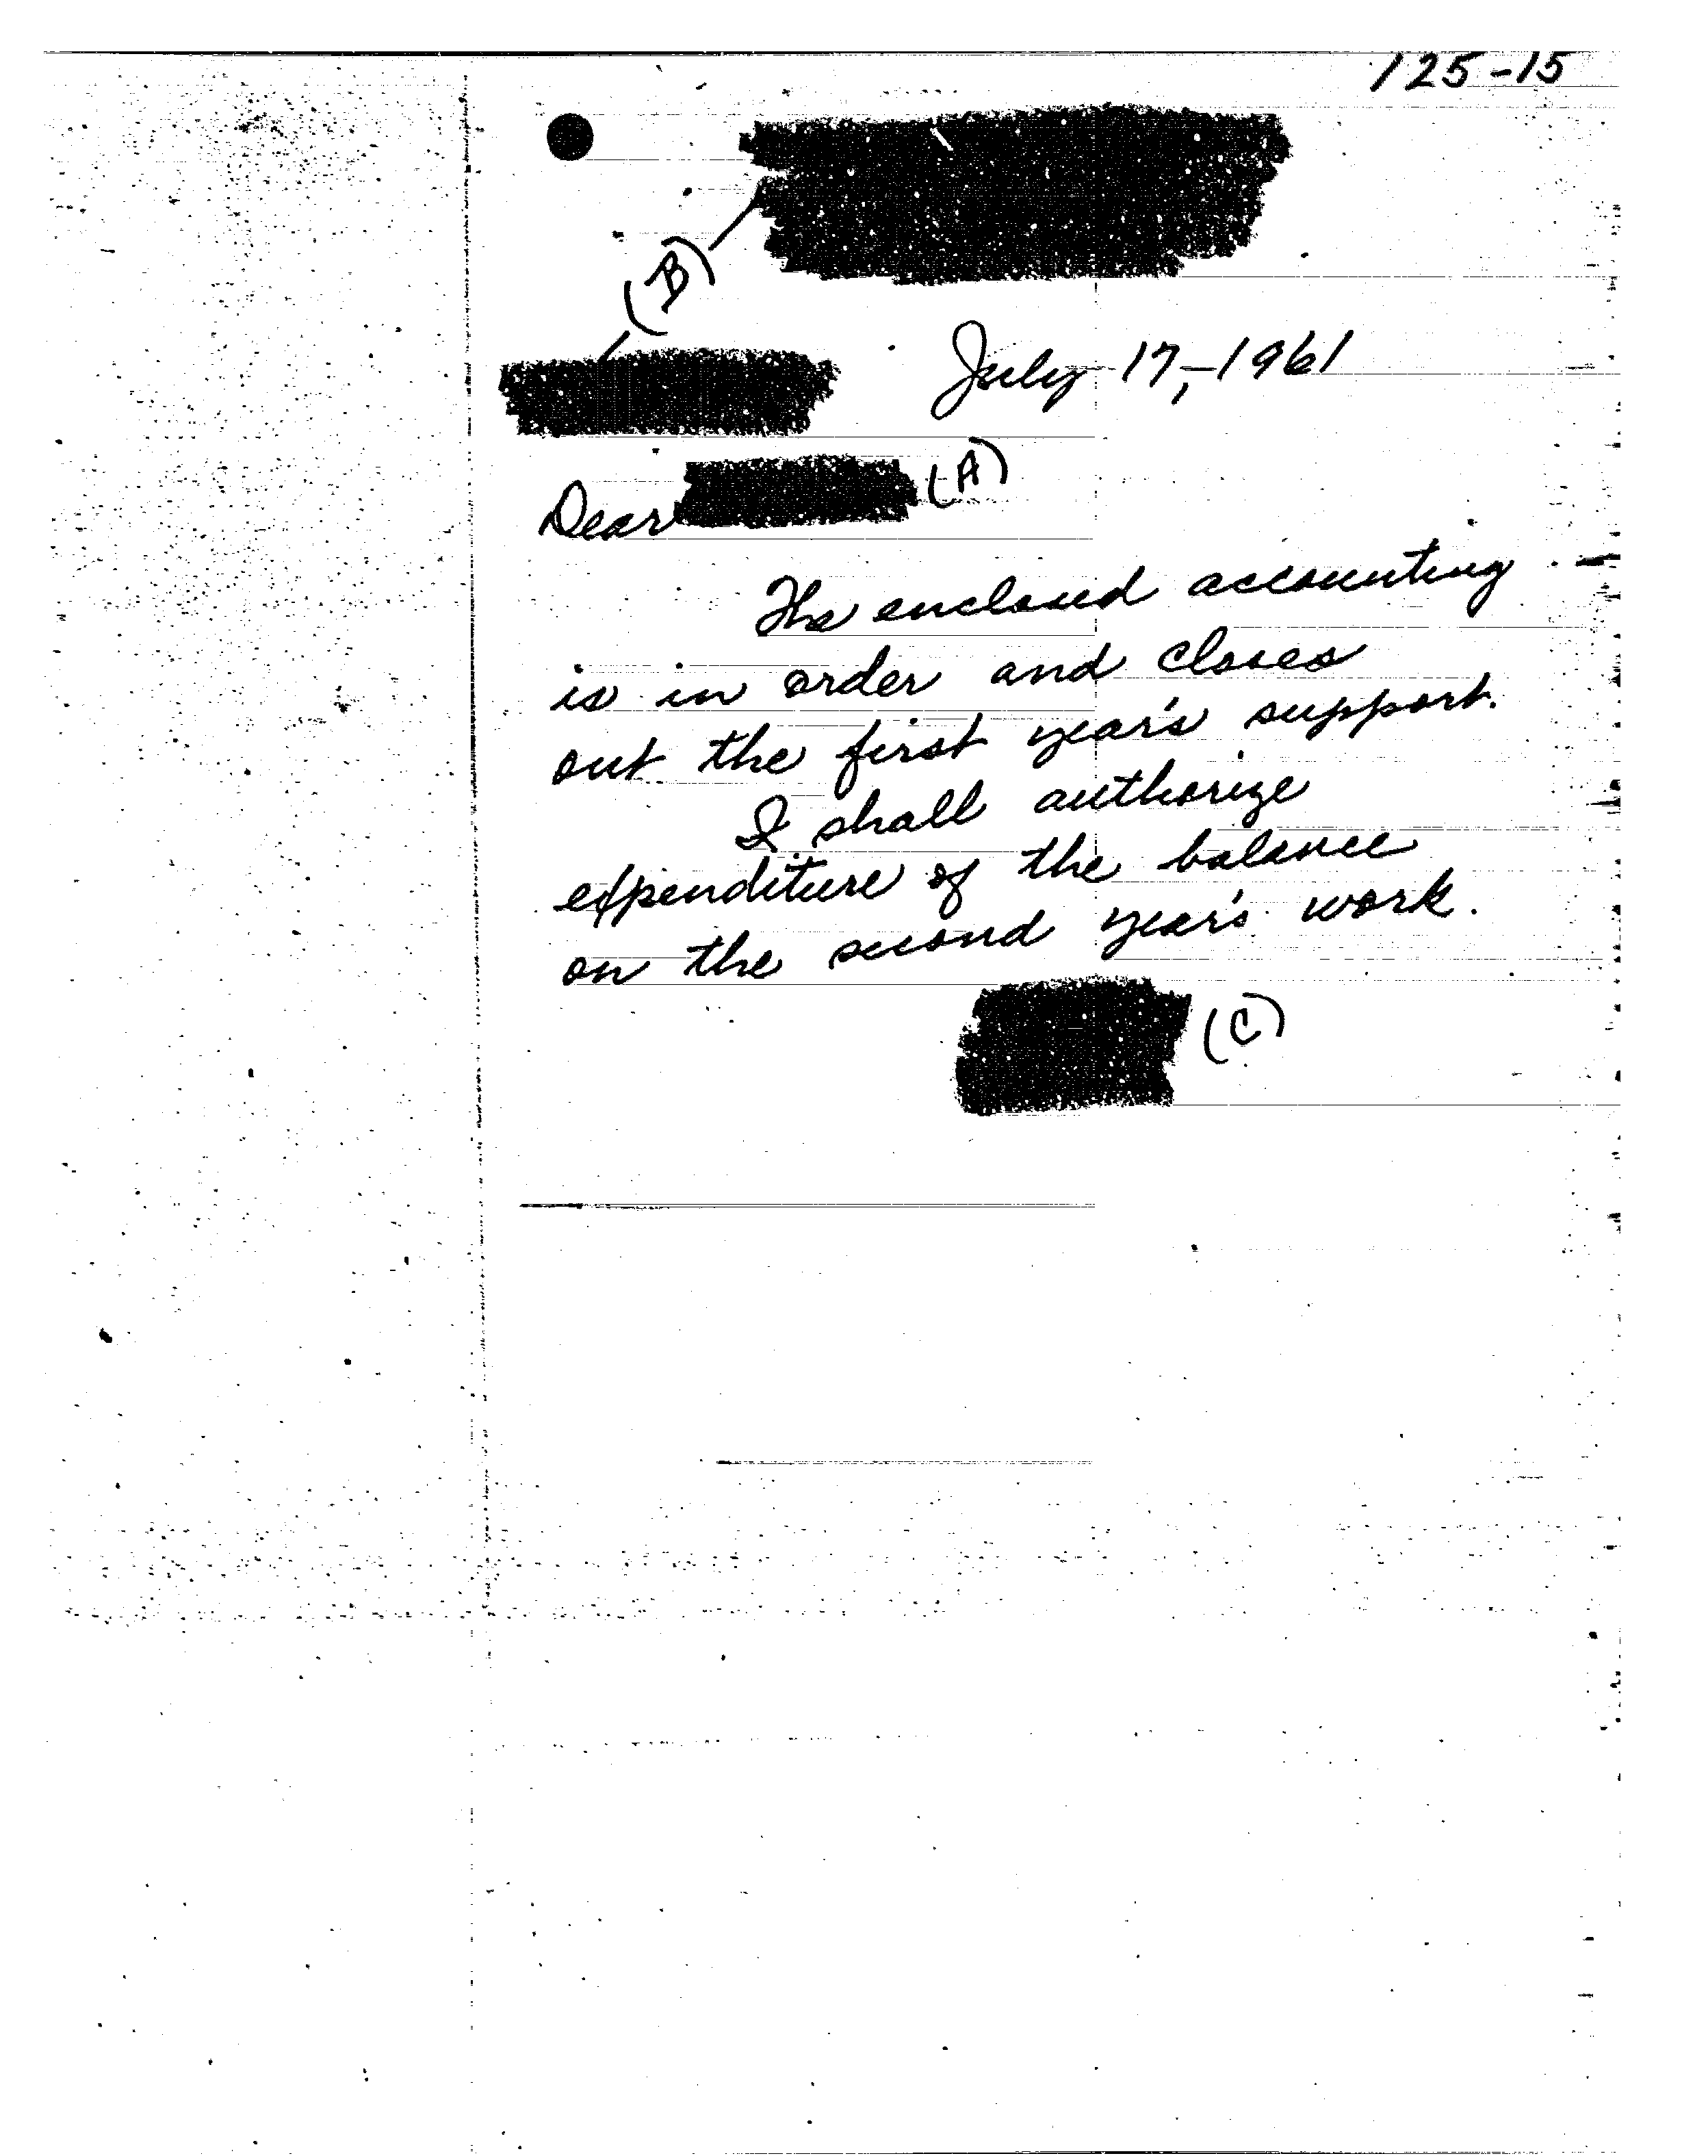 125-15
(B)
July 17, -1961
Dear (A)
The enclosed accounting
is in order and closes
out the first year's support.
I shall authorize
expenditure of the balance
on the second year's work.
(C)